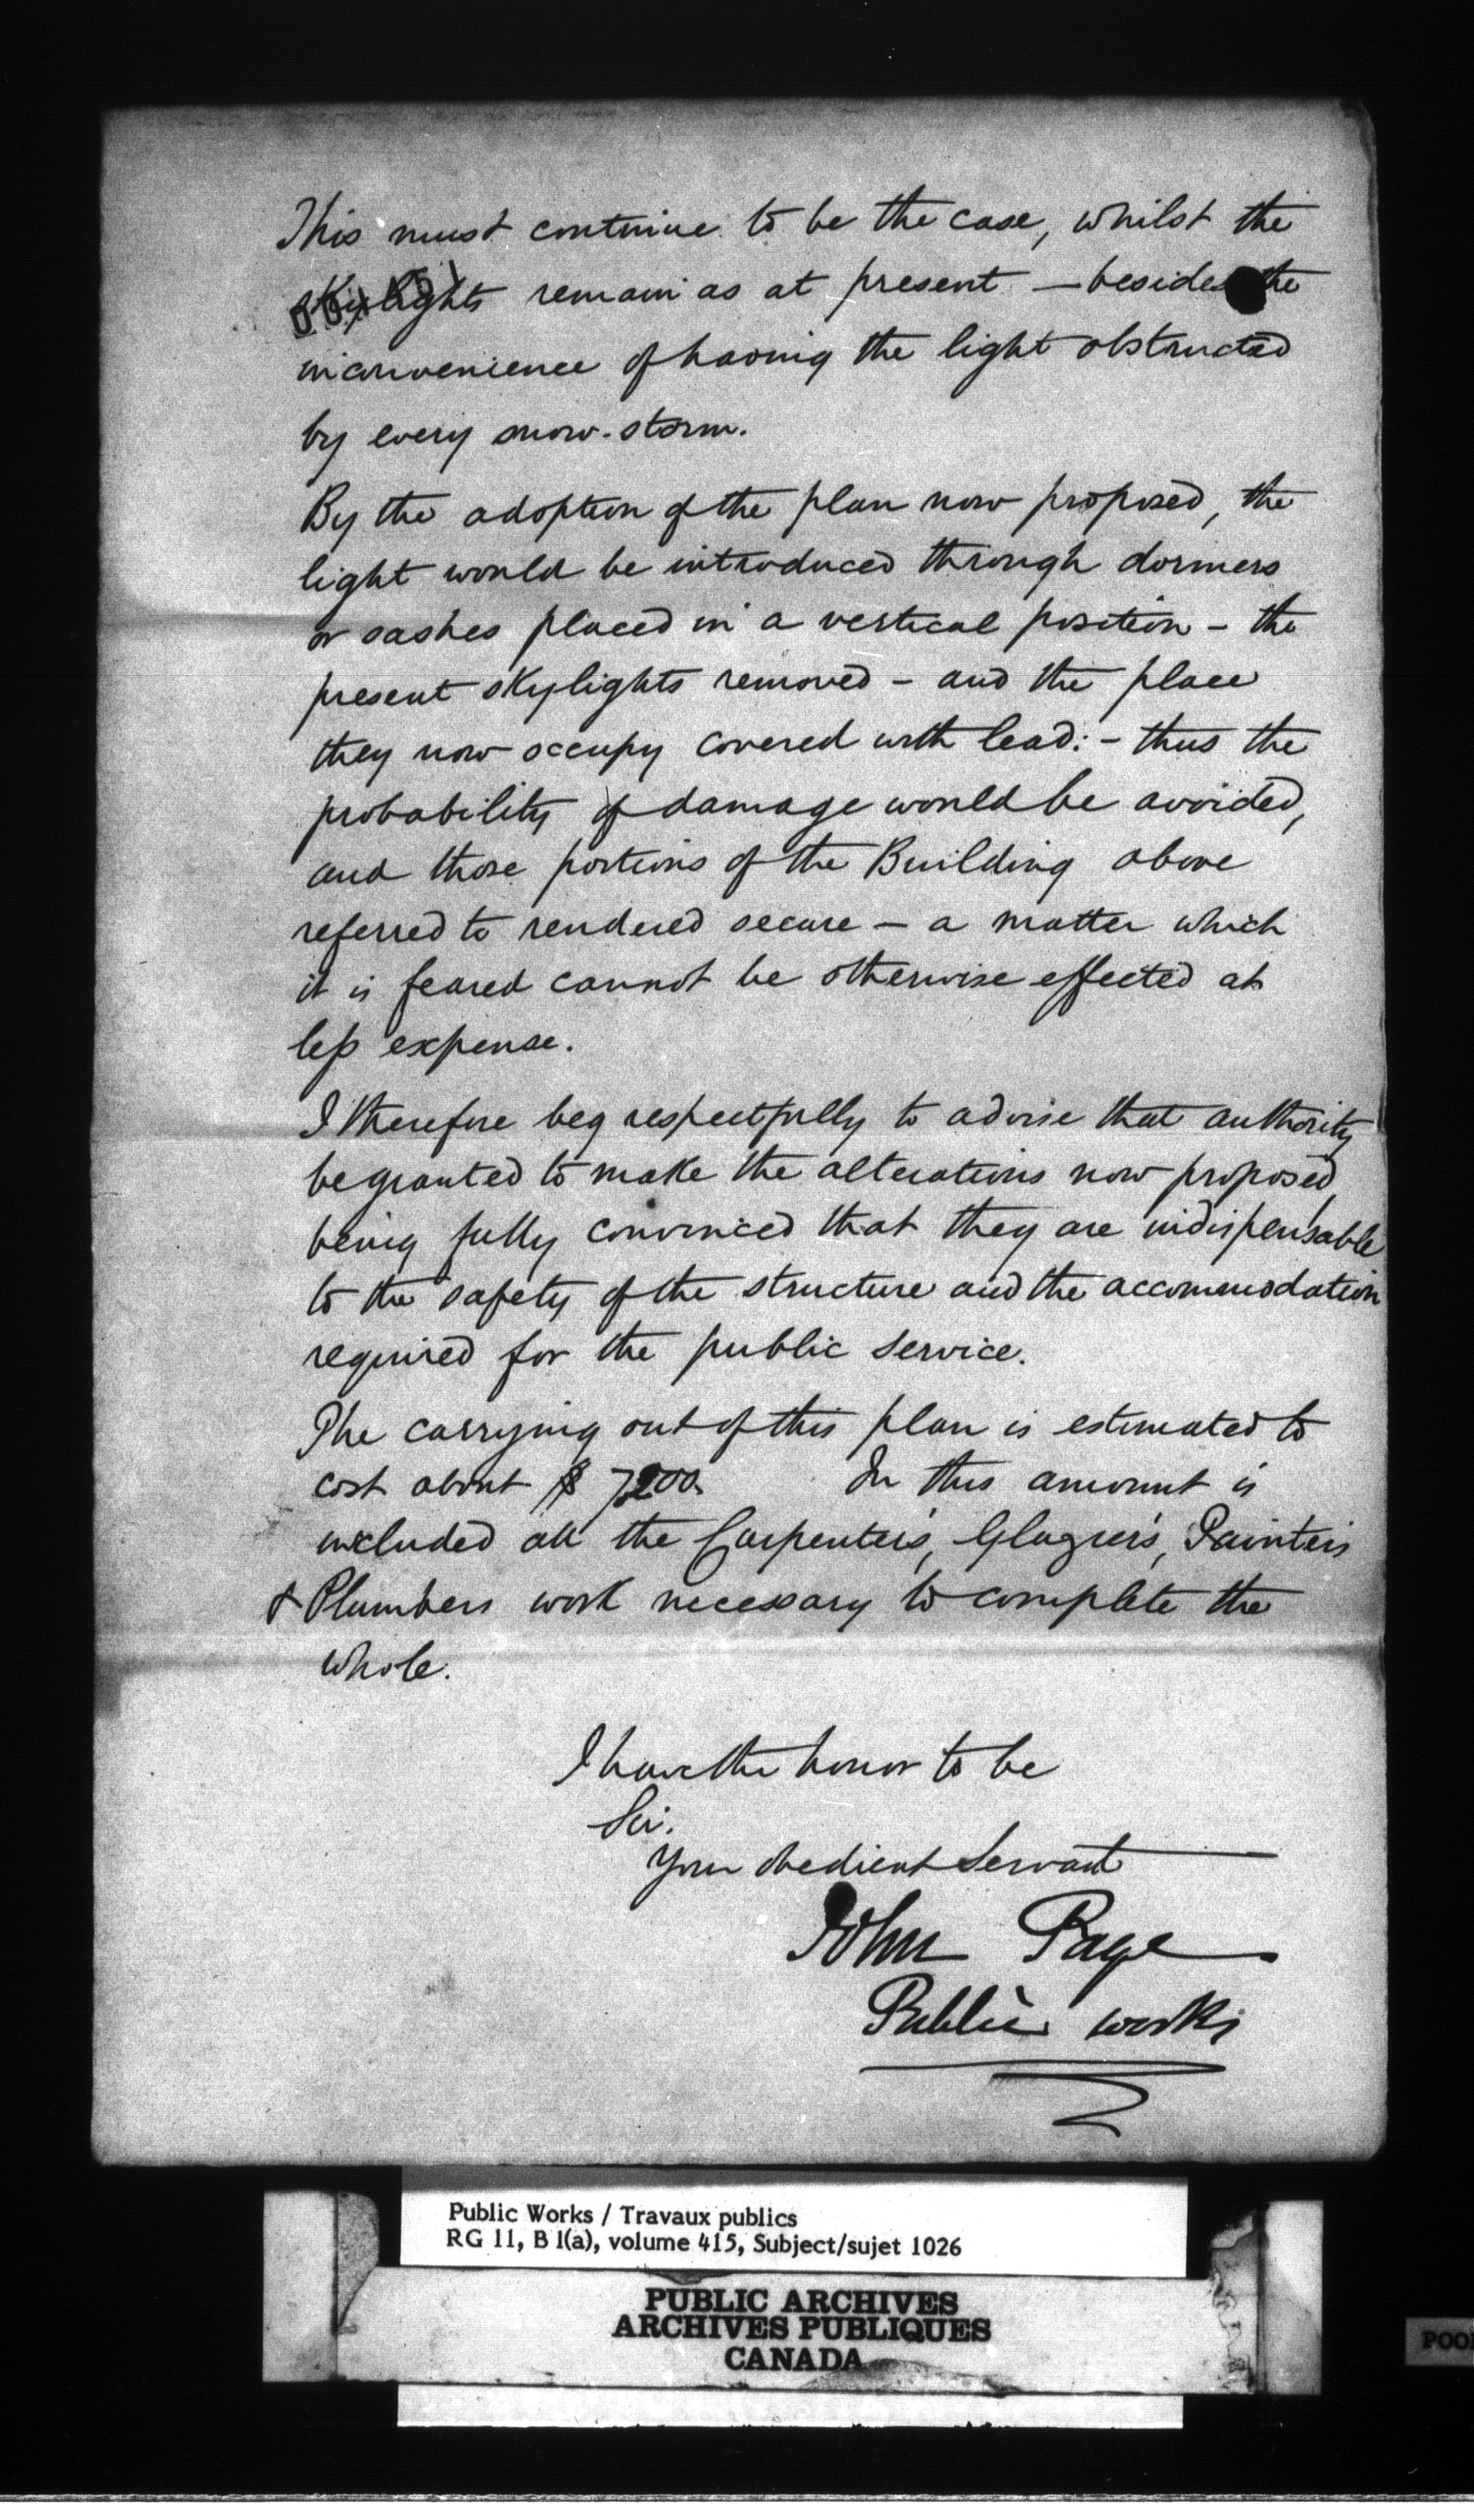 This must continue to be the case, whilst the
skylights remain as at present — besides the
inconvenience of having the light obstructed
by every snow-storm.
By the adoption of the plan now proposed, the
light would be introduced through dormers
or sashes placed in a vertical position – the
present skylights removed – and the place
they now occupy covered with lead: – thus the
probability of damage would be avoided,
and those portions of the Building above
referred to rendered secure – a matter which
it is feared cannot be otherwise effected at
less expense.
I therefore beg respectfully to advise that authority
be granted to make the alterations now proposed,
being fully convinced that they are indispensable
to the safety of the structure and the accommodation
required for the public service.
The carrying out of this plan is estimated to
cost about $ 7,200. In this amount is
included all the Carpenter's, Glazier's, Painter's
& Plumbers work necessary to complete the
whole.
I have the honor to be
Sir.
Your obedient Servant
John Page
Public works
Public Works / Travaux publics
RG 11, B 1(a), volume 415, Subject/sujet 1026
PUBLIC ARCHIVES
ARCHIVES PUBLIQUES
CANADA